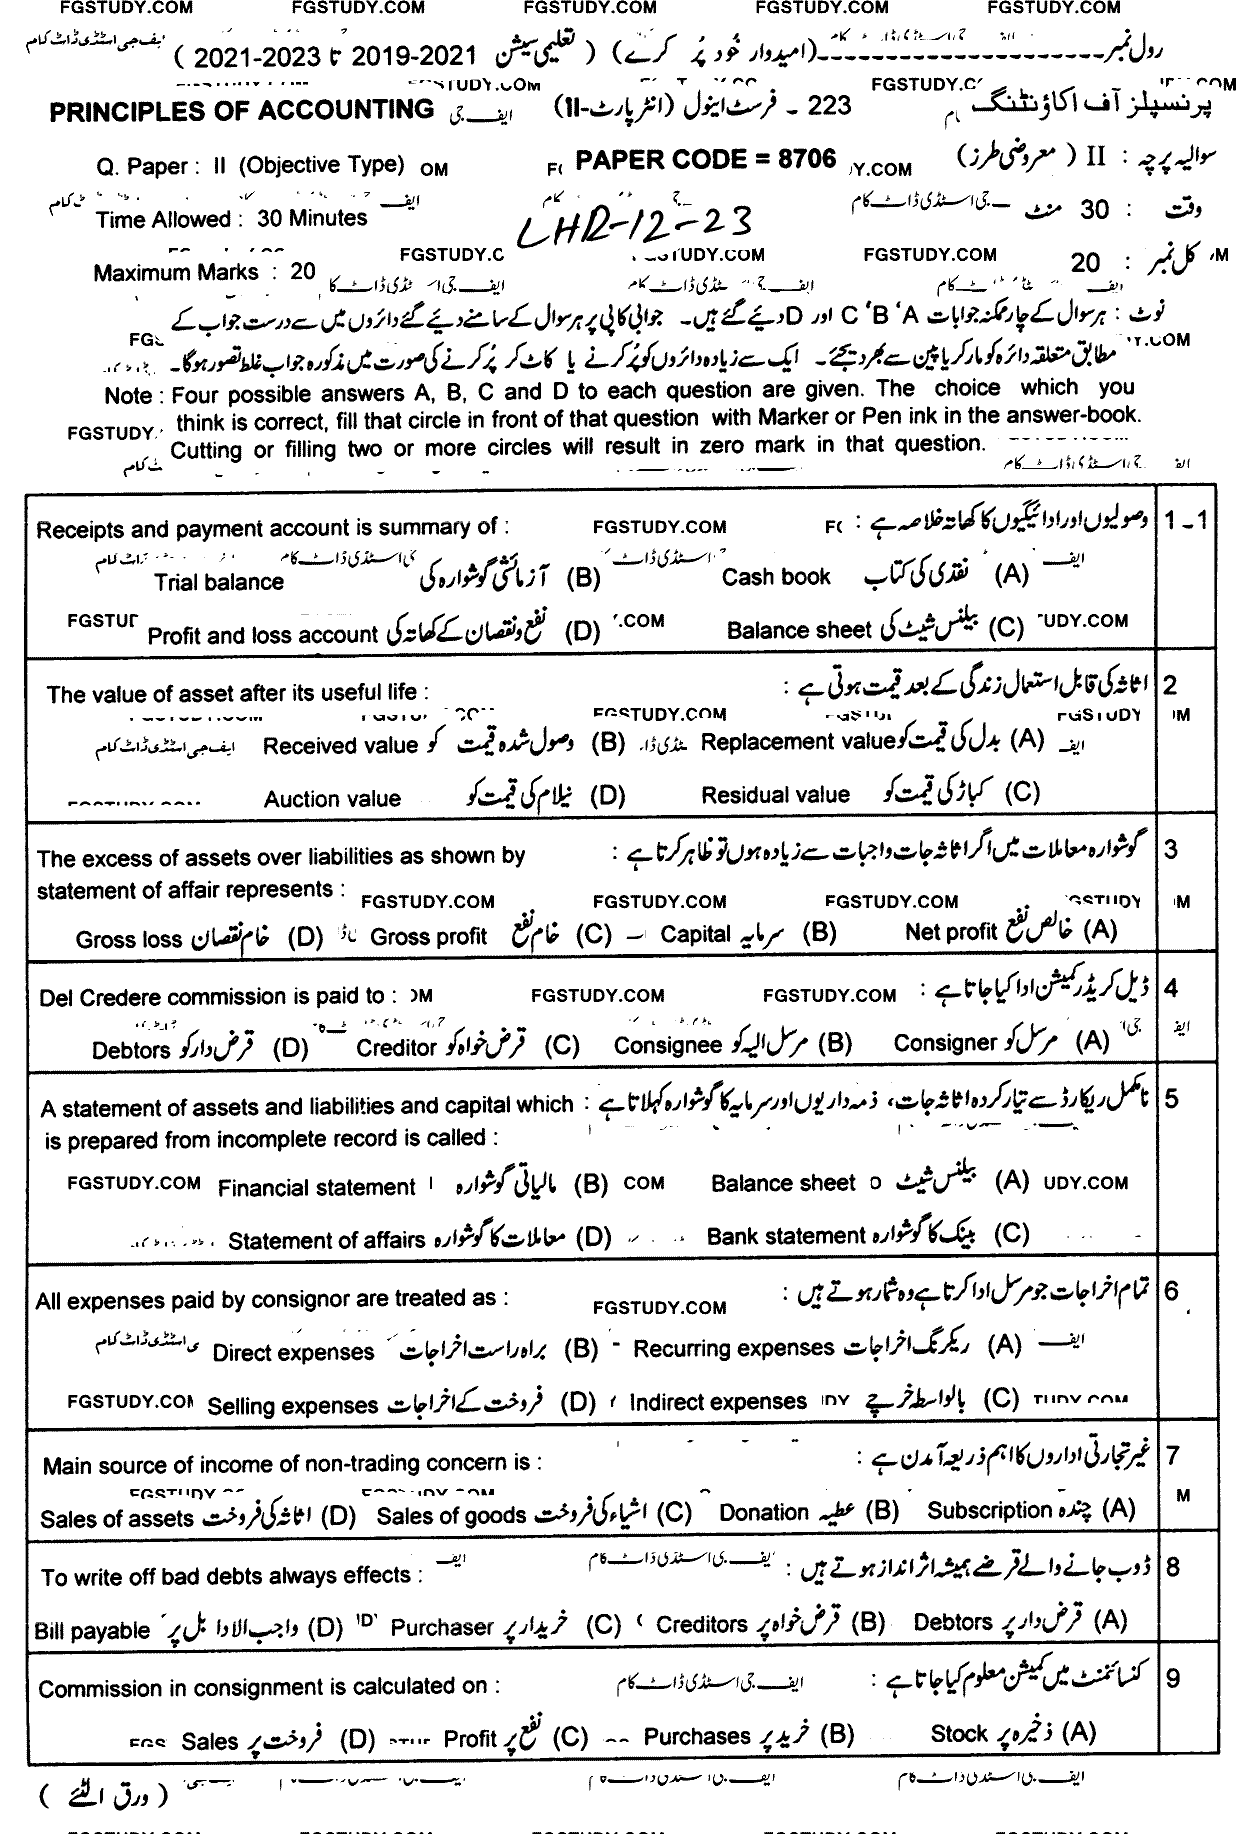 FGSTUDY.COM FGSTUDY.COM FGSTUDY.COM FGSTUDY.COM FGSTUDY.COM
رول نمبر ------------------(امیدوار خود پُر کرے) ( تعلیمی سیشن 2021-2019 تا 2023-2021 )
PRINCIPLES OF ACCOUNTING پرنسپلز آف اکاؤنٹنگ 223 - فرسٹ اینول (انٹر پارٹ-II)
Q. Paper : II (Objective Type) PAPER CODE = 8706 سوالیہ پرچہ : II ( معروضی طرز )
Time Allowed : 30 Minutes LHR-12-23 وقت : 30 منٹ
FGSTUDY.COM FGSTUDY.COM
Maximum Marks : 20 کل نمبر : 20
نوٹ : ہر سوال کے چار ممکنہ جوابات A ' B ' C اور D دیئے گئے ہیں۔ جوابی کاپی پر ہر سوال کے سامنے دیئے گئے دائروں میں سے درست جواب کے
مطابق متعلقہ دائرہ کو مارکر یا پین سے بھر دیجئے۔ ایک سے زیادہ دائروں کو پُر کرنے یا کاٹ کر پُر کرنے کی صورت میں مذکورہ جواب غلط تصور ہوگا۔
Note : Four possible answers A, B, C and D to each question are given. The choice which you
think is correct, fill that circle in front of that question with Marker or Pen ink in the answer-book.
Cutting or filling two or more circles will result in zero mark in that question.
Receipts and payment account is summary of : FGSTUDY.COM وصولیوں اور ادائیگیوں کا کھاتہ خلاصہ ہے : 1-1
Trial balance آزمائشی گوشوارہ کی (B) Cash book نقدی کی کتاب (A)
Profit and loss account نفع و نقصان کے کھاتہ کی (D) Balance sheet بیلنس شیٹ کی (C)
The value of asset after its useful life : اثاثہ کی قابل استعمال زندگی کے بعد قیمت ہوتی ہے : 2
Received value وصول شدہ قیمت کو (B) Replacement value بدل کی قیمت کو (A)
Auction value نیلام کی قیمت کو (D) Residual value کباڑ کی قیمت کو (C)
The excess of assets over liabilities as shown by گوشوارہ معاملات میں اگر اثاثہ جات واجبات سے زیادہ ہوں تو ظاہر کرتا ہے : 3
statement of affair represents : FGSTUDY.COM FGSTUDY.COM FGSTUDY.COM
Gross loss خام نقصان (D) Gross profit خام نفع (C) Capital سرمایہ (B) Net profit خالص نفع (A)
Del Credere commission is paid to : FGSTUDY.COM FGSTUDY.COM ڈیل کریڈر کمیشن ادا کیا جاتا ہے : 4
Debtors قرض دار کو (D) Creditor قرض خواہ کو (C) Consignee مرسل الیہ کو (B) Consigner مرسل کو (A)
A statement of assets and liabilities and capital which نامکمل ریکارڈ سے تیار کردہ اثاثہ جات، ذمہ داریوں اور سرمایہ کا گوشوارہ کہلاتا ہے : 5
is prepared from incomplete record is called :
FGSTUDY.COM Financial statement مالیاتی گوشوارہ (B) Balance sheet بیلنس شیٹ (A)
Statement of affairs معاملات کا گوشوارہ (D) Bank statement بینک کا گوشوارہ (C)
All expenses paid by consignor are treated as : FGSTUDY.COM تمام اخراجات جو مرسل ادا کرتا ہے وہ شمار ہوتے ہیں : 6
Direct expenses براہ راست اخراجات (B) Recurring expenses ریکرنگ اخراجات (A)
Selling expenses فروخت کے اخراجات (D) Indirect expenses بالواسطہ خرچے (C)
Main source of income of non-trading concern is : غیر تجارتی اداروں کا اہم ذریعہ آمدن ہے : 7
Sales of assets اثاثہ کی فروخت (D) Sales of goods اشیاء کی فروخت (C) Donation عطیہ (B) Subscription چندہ (A)
To write off bad debts always effects : ڈوب جانے والے قرضے ہمیشہ اثر انداز ہوتے ہیں : 8
Bill payable واجب الادا بل پر (D) Purchaser خریدار پر (C) Creditors قرض خواہ پر (B) Debtors قرض دار پر (A)
Commission in consignment is calculated on : کنسائنمنٹ میں کمیشن معلوم کیا جاتا ہے : 9
Sales فروخت پر (D) Profit نفع پر (C) Purchases خرید پر (B) Stock ذخیرہ پر (A)
( ورق الٹئے )